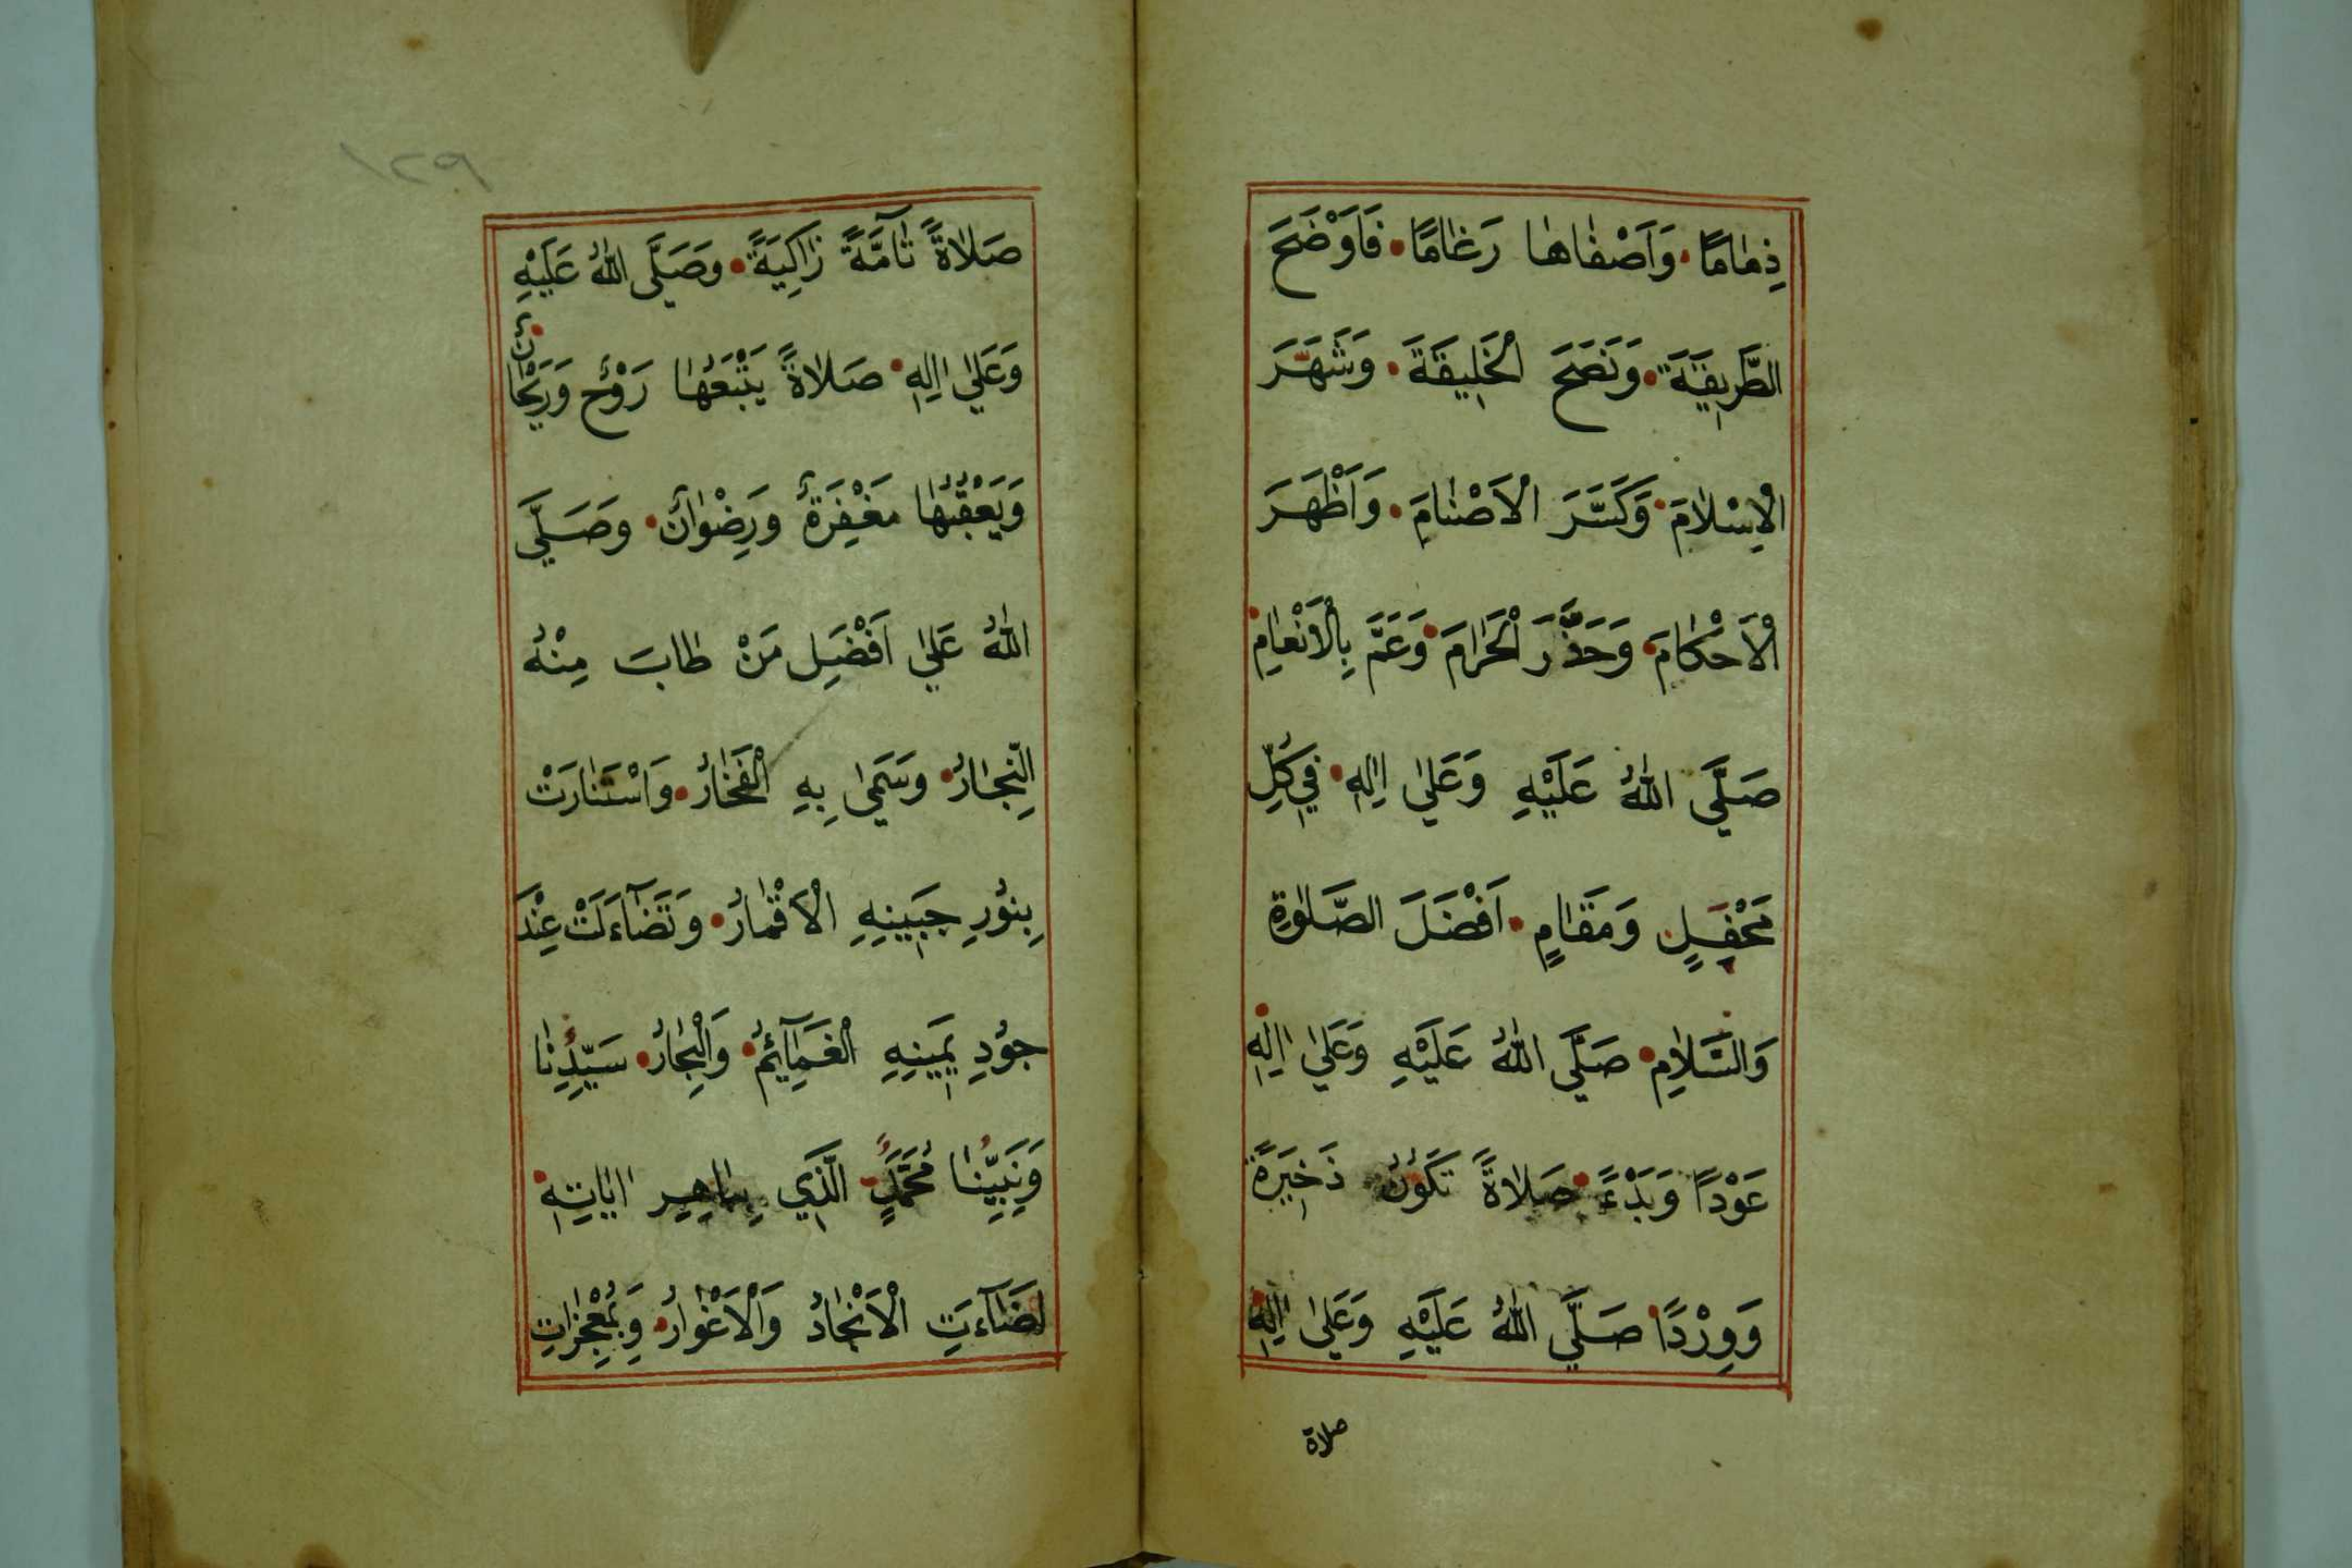 ذِمَامًا • وَاَصْفَاهَا رَغَامًا • فَاَوْضَحَ
الطَّرِيقَةَ • وَنَصَحَ الْخَلِيقَةَ • وَشَهَّرَ
الْاِسْلَامَ • وَكَسَّرَ الْاَصْنَامَ • وَاَظْهَرَ
الْاَحْكَامَ • وَحَذَّرَ الْحَرَامَ • وَعَمَّ بِالْاَنْعَامِ •
صَلَّي اللّٰهُ عَلَيْهِ وَعَلٰي اٰلِهٖ • فِي كُلِّ
مَحْفِلٍ وَمَقَامٍ • اَفْضَلَ الصَّلٰوةِ
وَالسَّلَامِ • صَلَّي اللّٰهُ عَلَيْهِ وَعَلٰي اٰلِهٖ •
عَوْدًا وَبَدْءً • صَلَاةً تَكُونُ ذَخِيرَةً
وَوِرْدًا • صَلَّي اللّٰهُ عَلَيْهِ وَعَلٰي اٰلِهٖ
صلاة
١٢٩
صَلَاةً تَآمَّةً زَاكِيَةً • وَصَلَّى اللّٰهُ عَلَيْهِ
وَعَلٰي اٰلِهٖ • صَلَاةً يَتْبَعُهَا رَوْحٌ وَرَيْحَانٌ •
وَيَعْقُبُهَا مَغْفِرَةٌ وَرِضْوَانٌ • وَصَلَّي
اللّٰهُ عَلٰي اَفْضَلِ مَنْ طَابَ مِنْهُ
النِّجَارُ • وَسَمٰي بِهِ الْفَخَارُ • وَاسْتَنَارَتْ
بِنُورِ جَبِينِهِ الْاَقْمَارُ • وَتَضَآءَلَتْ عِنْدَ
جُودِ يَمِينِهِ الْغَمَآئِمُ • وَالْبِحَارُ • سَيِّدِنَا
وَنَبِيِّنَا مُحَمَّدٍ • الَّذِي بِبَاهِرِ اٰيَاتِهٖ •
اَضَآءَتِ الْاَنْجَادُ وَالْاَغْوَارُ • وَبِمُعْجِزَاتِ